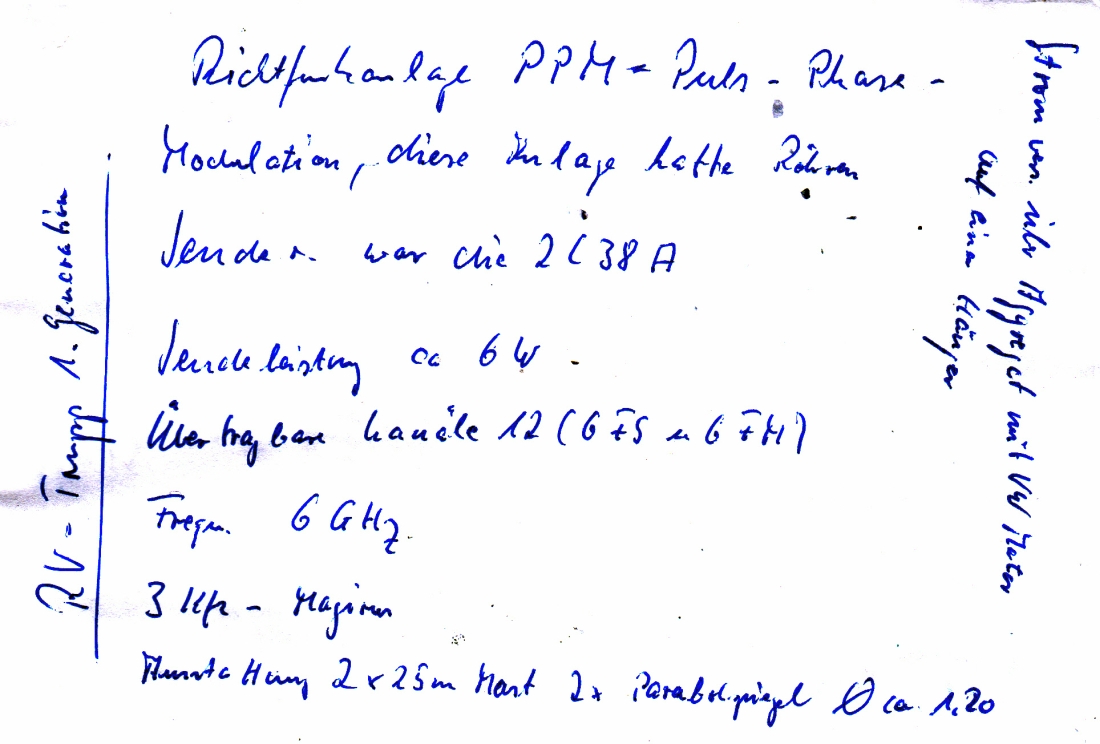 RV - Trupp 1. Generation
Richtfunkanlage PPM = Puls - Phase -
Modulation, diese Anlage hatte Röhren
Sender. war die 2C38A
Sendeleistung ca 6 W
Übertragbare Kanäle 12 (6 FS u 6 FM)
Frequ. 6 GHz
3 Kfz - Magirus
Ausstattung 2 x 25m Mast 2x Parabolspiegel Ø ca. 1,20
Strom ver. über Aggregat mit VW Motor
auf einem Hänger